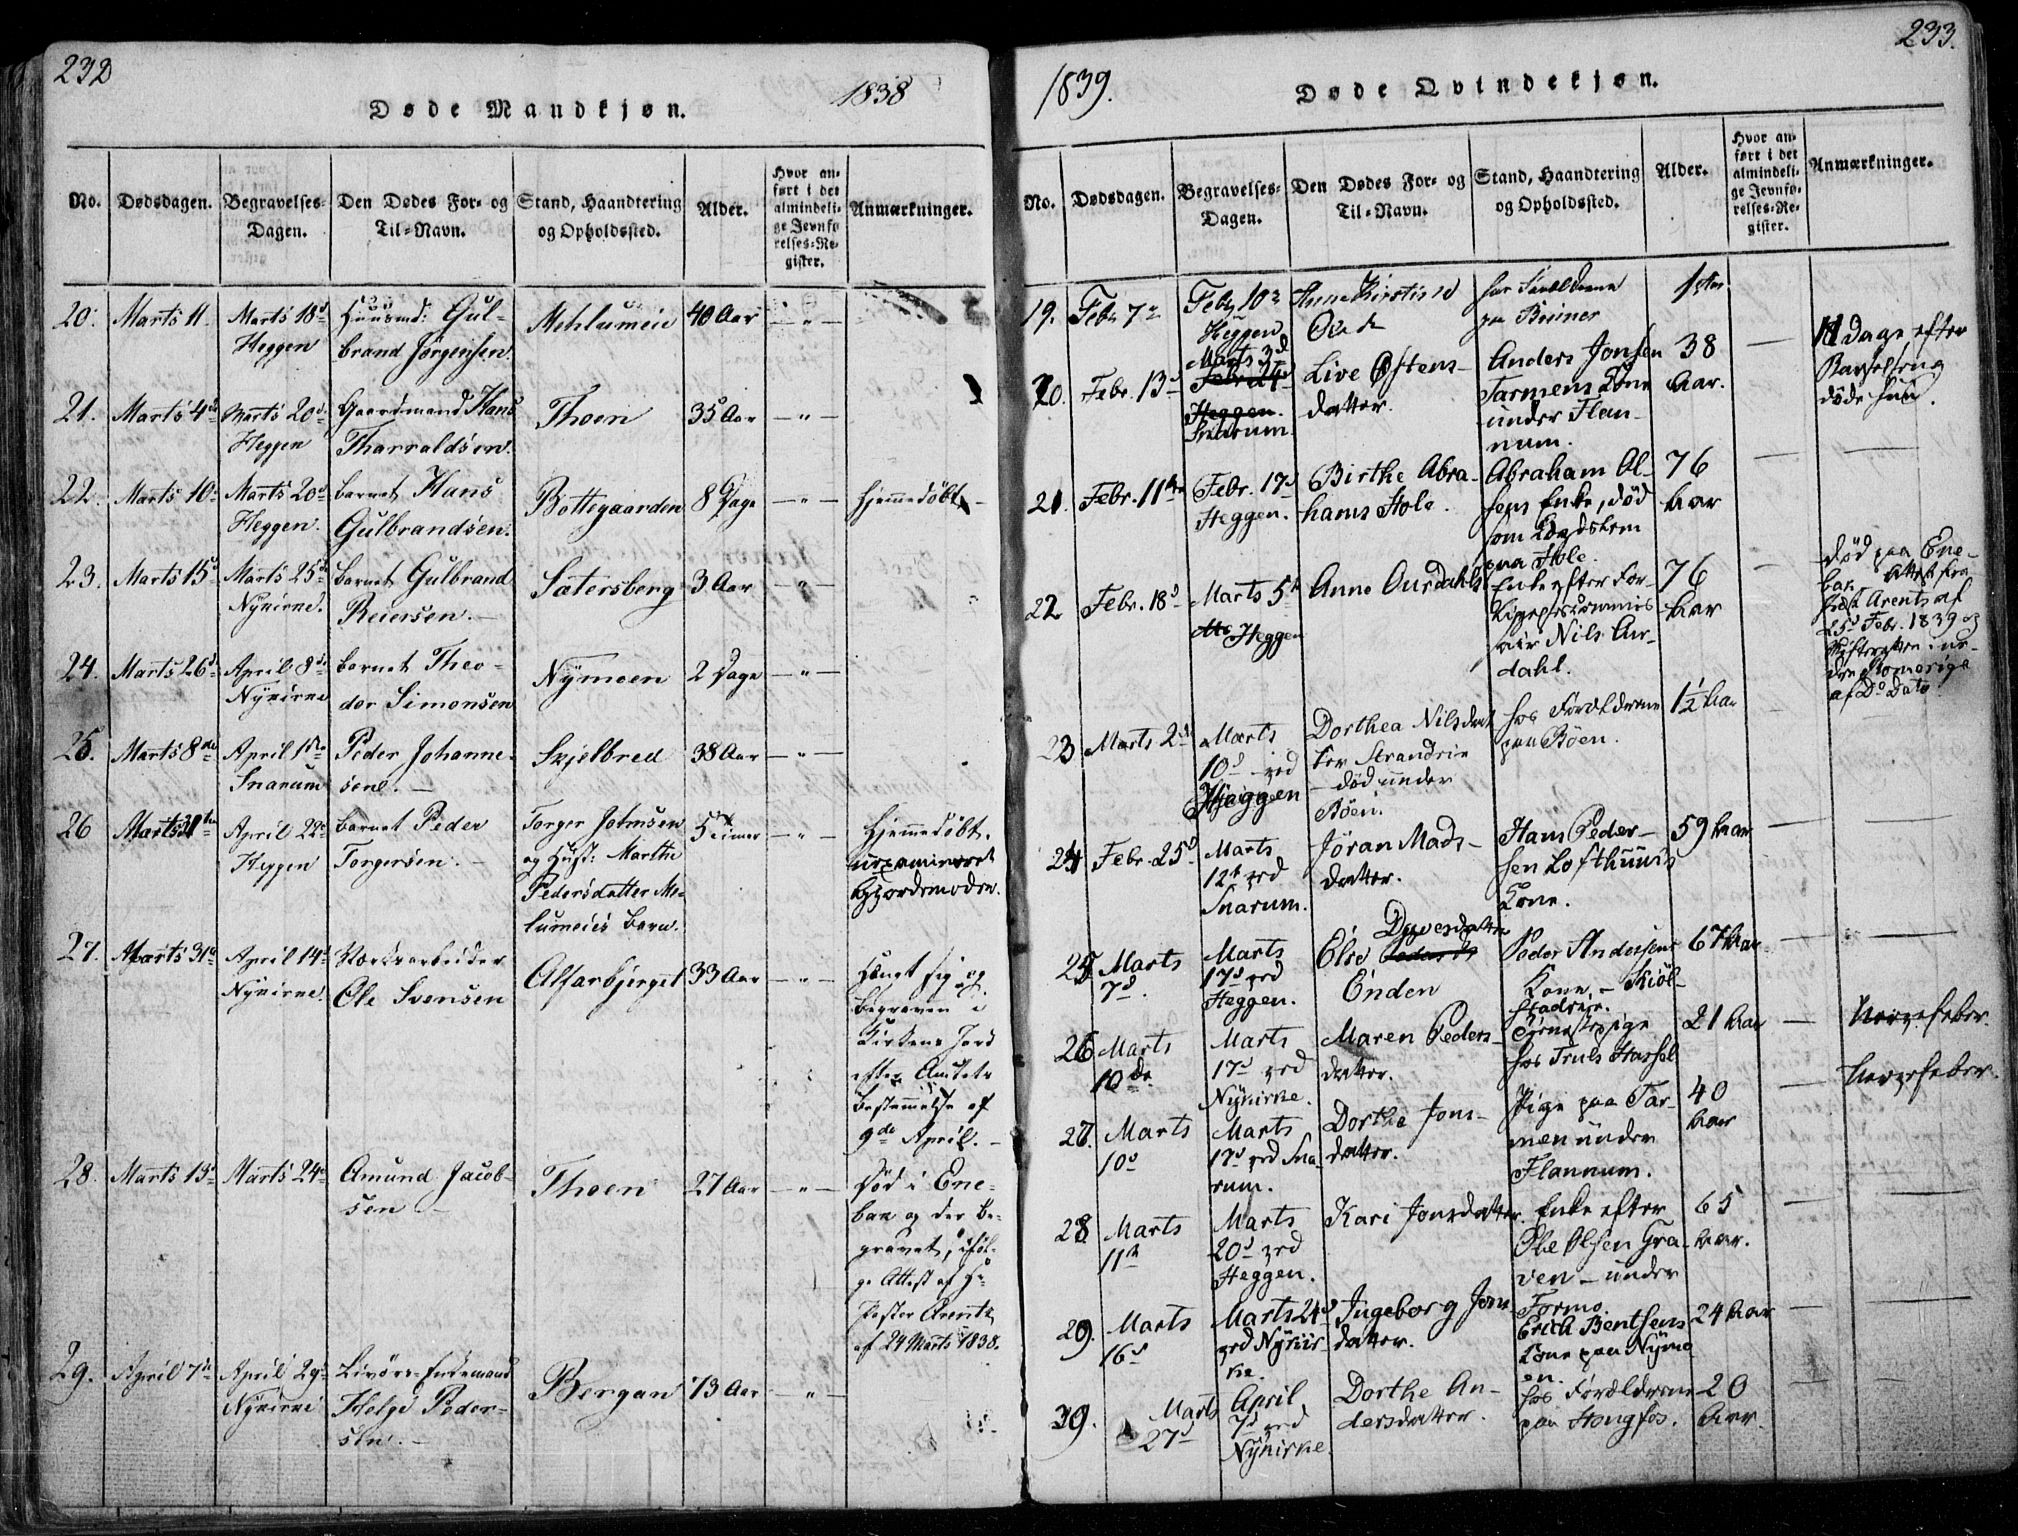 232
1838
Døde Mandkjøn.
No.
Dødsdagen.
Begravelses-
Dagen.
Den Dødes For- og
Til-Navn.
Stand, Haandtering
og Opholdssted.
Alder.
Hvor an-
ført i det
almindeli-
ge Jevnfø
relses-Re-
gister.
Anmærkninger.
20.
Marts 11
Marts 18d
Heggen
Huusmd: Gul-
brand Jørgensen.
Mehlumeie
40 Aar
21.
Marts 4de
Marts 20d
Heggen
Gaardmand Hans
Tharraldsen.
Thoen
35 Aar
22.
Marts 10
Marts 20d
Heggen.
barnet Hans
Gulbrandsen.
Bottegaarden
8 Dage
hjemmedøbt
23.
Marts 15d
Marts 25de
Nykirne.
barnet Gulbrand
Reiersen.
Sætersberg
3 Aar
24.
Marts 26d
April 8de
Nykirne
barnet Theo-
dor Simonsen
Nymoen
2 Dage
25.
Marts 8de
April 1ste
Snarum
Peder Johanne-
sene.
Skjelbred
38 Aar
26
Marts 31te
April 22d
Heggen
barnet Peder
Torgersen.
Torger Johnsen
og Hust: Marthe
Pedersdatter Me-
lumeies barn.
5 Timer
hjemmedøbt.
uexamineret
Gjordemoder.
27.
Marts 31te
April 14d
Nykirne.
Værksarbeider
Ole Svensen
Alfarbjerget
33 Aar
Hængt sig og
begraven i
Kirkens Jord
efter Amtets
bestemmelse af
9de April.
28.
Marts 13
Marts 24
Amund Jacob-
sen
Thoen
27 Aar
Død i Ene-
bak og der be-
gravet, iføl-
ge Attest af Hr
Pastor Arentz
af 24 Marts 1838.
29.
April 7de
April 29
Nykirne
Livøre-Enkemand
Helge Peder-
sen.
Bergan
73 Aar
233.
1839.
Døde Qvindekjøn.
No.
Dødsdagen.
Begravelses-
Dagen.
Den Dødes For- og
Til-Navn.
Stand, Haandtering
og Opholdssted.
Alder.
Hvor an-
ført i det
almindeli-
ge Jevnfø-
relses-Re-
gister.
Anmærkninger.
19.
Febr 7
Febr 10
Heggen
Anne Kirstine
hos Forældrene
paa
20.
Febr. 13d
Marts 3d
Febr 24d
Heggen.
Snarum.
Live Østens-
datter.
Anders Jonsen
Tarmens Kone
under Flan-
num.
38
Aar.
11 Dage efter
Barselseng
døde hun.
21.
Febr. 11te
Febr. 17d
Heggen.
Birthe Abra-
hams Hole.
Abraham Ol-
sens Enke, død
som Lægdslem
paa Hole.
76
Aar
22
Febr. 18d
Marts 5t
Heggen
Anne Ourdahls
Enke efter For-
ligelsescommis
air Nils Aur-
dahl.
76
Aar
død paa Ene-
bak. Attest fra
Præst Arents af
25d Febr. 1839 og
Skifteretten i ne-
dre Romerige
af Do Dato
23
Marts 2d
Marts
10d ved
Heggen
Dorthea Nilsdat
ter Strandeie
- død under
Böen.
hos Forældrene
paa Böen.
1½ Aar
24
Febr. 25d
Marts
12t ved
Snarum.
Jöran Mads-
datter.
Hans Peder-
sen Lofthuus
Kone.
59 Aar
25
Marts
7d.
Marts
17d ved
Heggen.
Dyvesdatter
Else Peders
Enden
Peder Andersens
Kone - Skiöl-
stadeie.
67 Aar
26
Marts
10de.
Marts
17d ved
Nykirke.
Maren Peders-
datter.
Tjenestepige
hos Truls Hassel
21 Aar
Nervefeber.
27.
Marts
10d
Marts
17d ved Sna-
rum.
Dorthe Jons-
datter.
Pige paa Tar-
men under
Flannum.
40
Aar
Nervefeber.
28
Marts
11te
Marts
20d ved
Heggen.
Kari Jonsdatter.
Enke efter
Ole Olsen Gra-
ven - under
Formo.
65
Aar.
29.
Marts
16d
Marts 24d
ved Nykir
ke.
Ingeborg Jons-
datter.
Erich Bentsens
Kone paa Nymo
en.
24 Aar
30.
Marts
27d
April
7d ved
Nykirke
Dorthe An-
dersdatter.
hos Forældrene
paa Haugfos.
20
Aar.